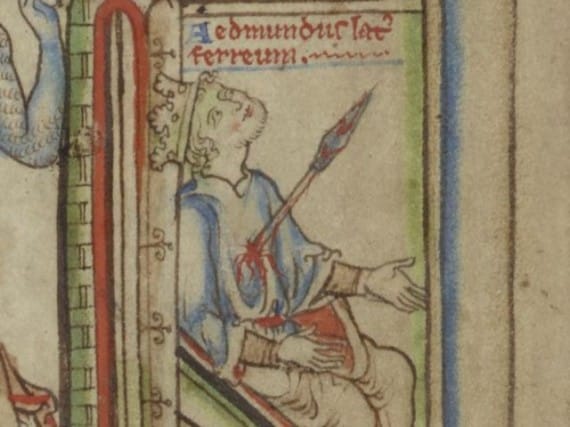 Aedmundus latꝰ
ferreum.